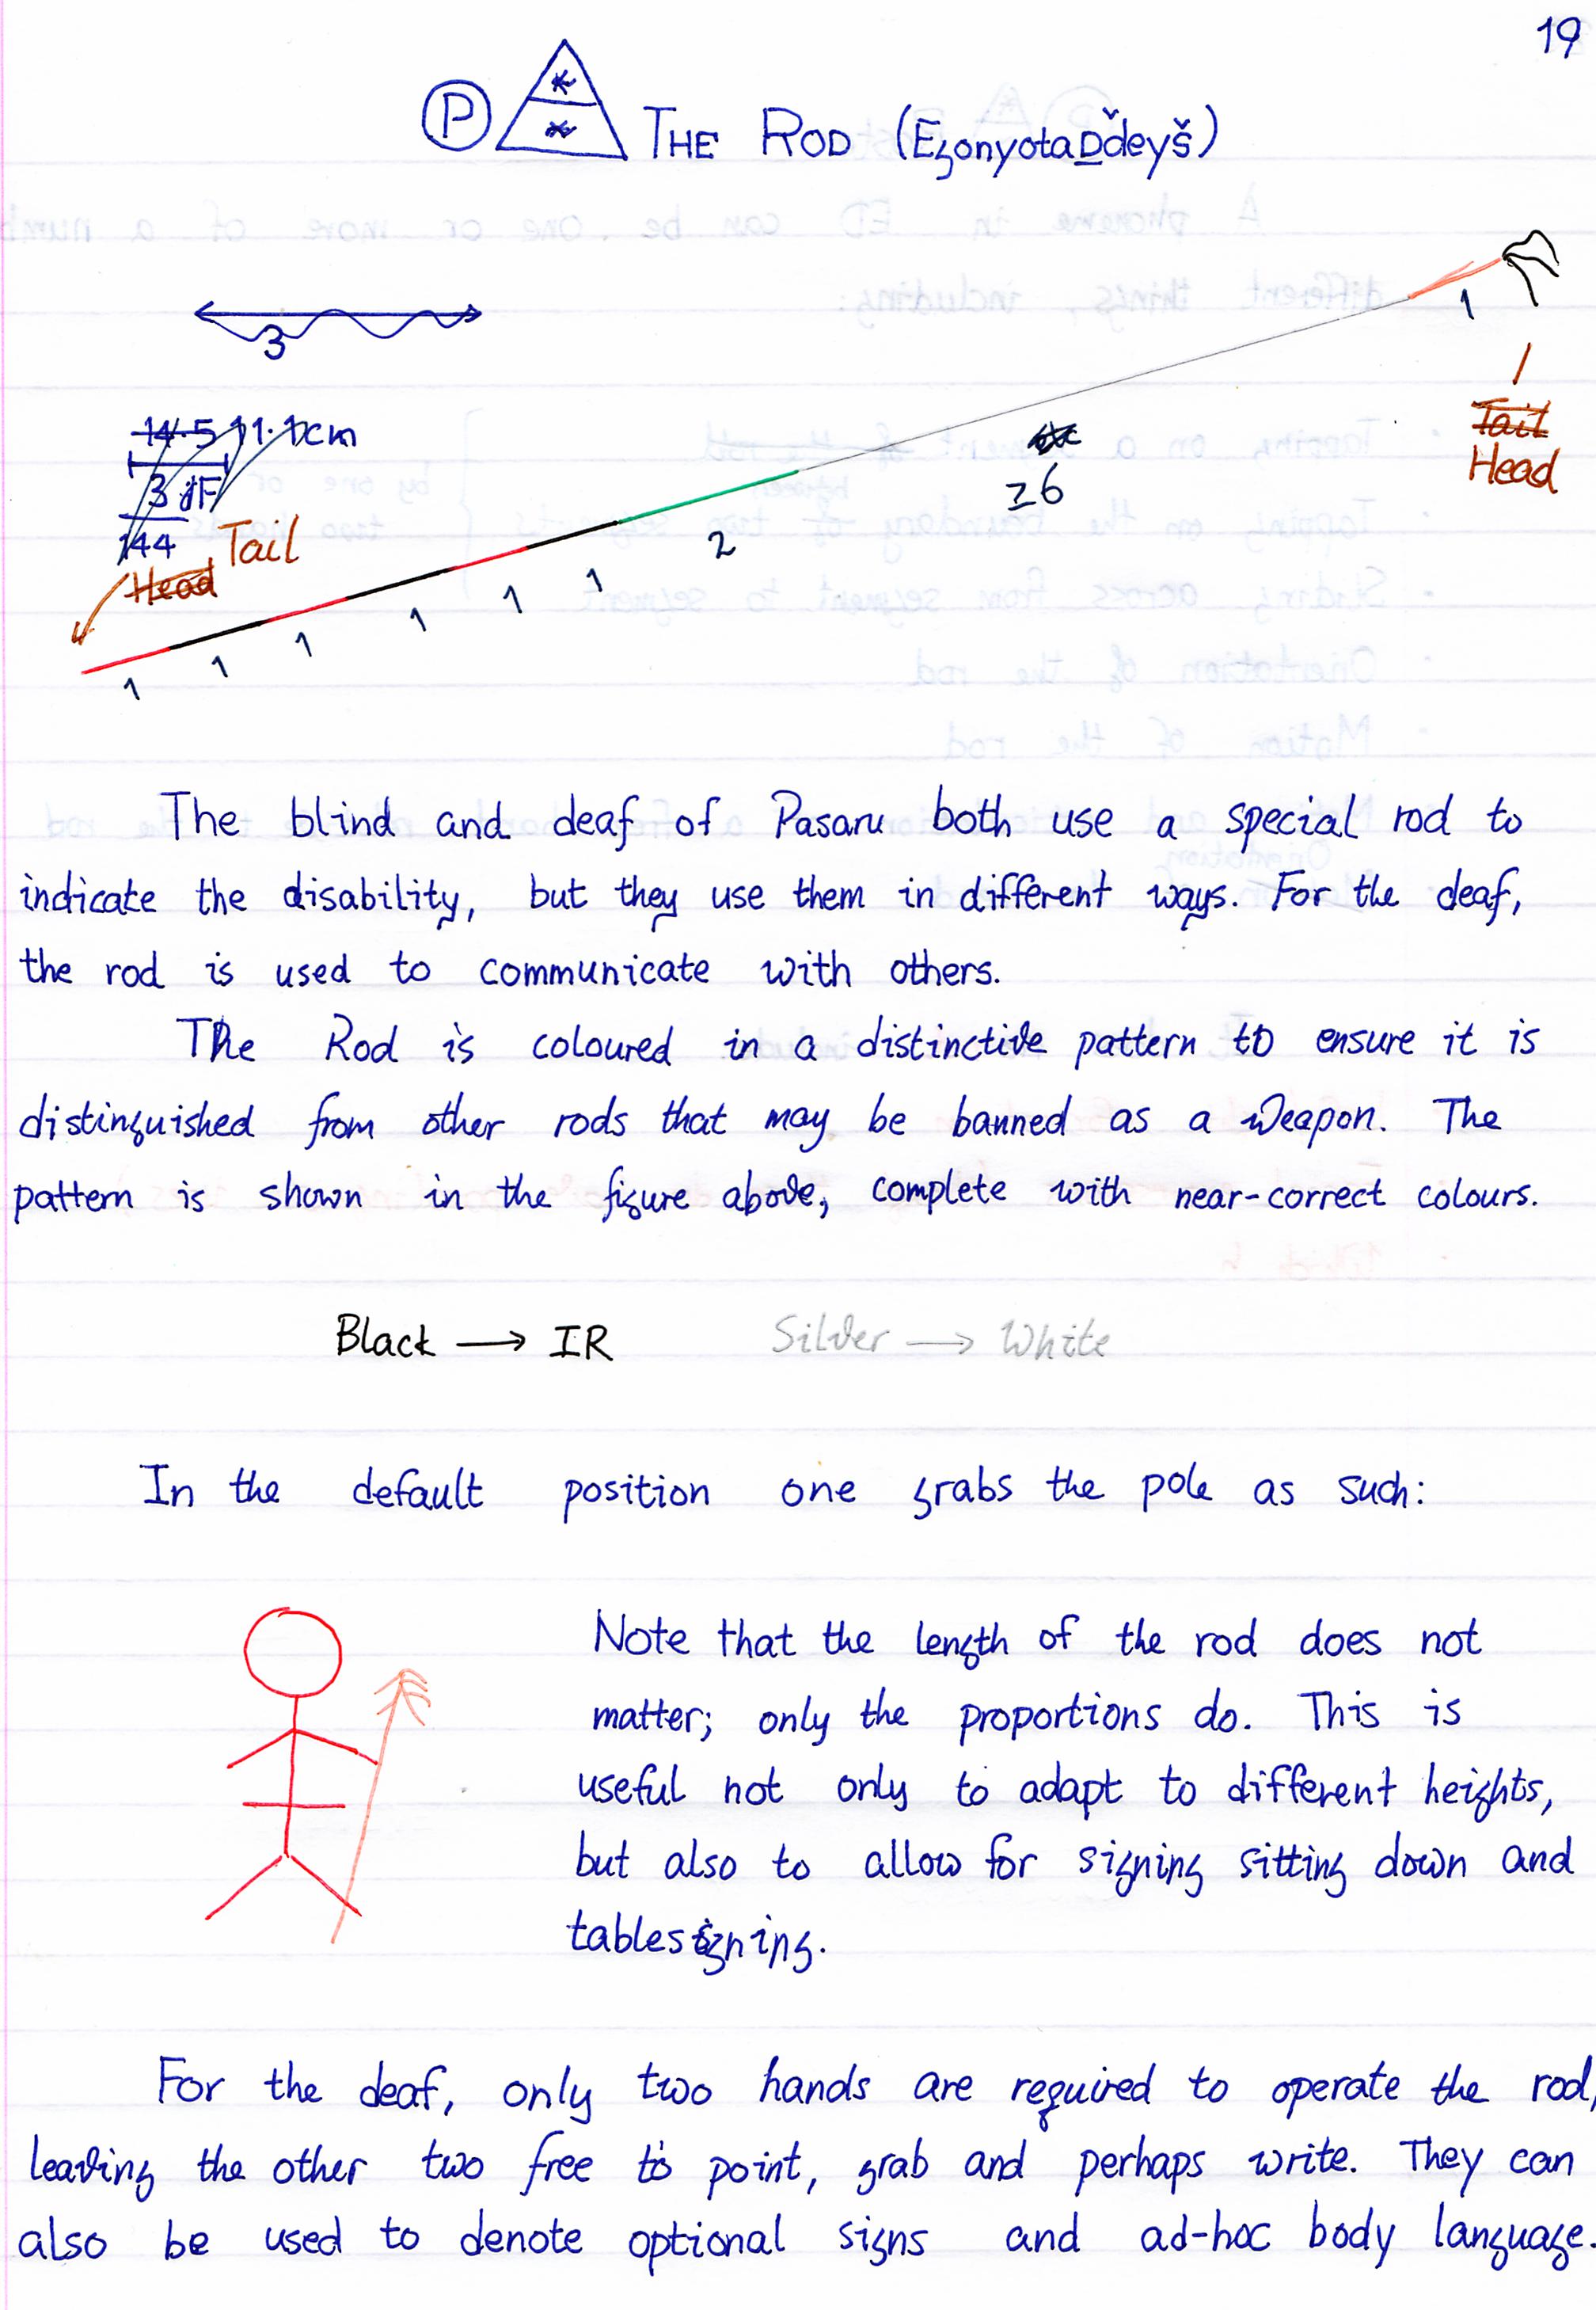 19
Ⓟ THE ROD (EgonyotaḎďeyš)
3
1
14.5 11.1cm
3 dF
144
Tail
Head
Tail
Head
≥6
2
1
1
1
1
1
1
The blind and deaf of Pasaru both use a special rod to
indicate the disability, but they use them in different ways. For the deaf,
the rod is used to communicate with others.
The Rod is coloured in a distinctive pattern to ensure it is
distinguished from other rods that may be banned as a weapon. The
pattern is shown in the figure above, complete with near-correct colours.
Black → IR
Silver → White
In the default position one grabs the pole as such:
Note that the length of the rod does not
matter; only the proportions do. This is
useful not only to adapt to different heights,
but also to allow for signing sitting down and
tablesigning.
For the deaf, only two hands are required to operate the rod,
leaving the other two free to point, grab and perhaps write. They can
also be used to denote optional signs and ad-hoc body language.